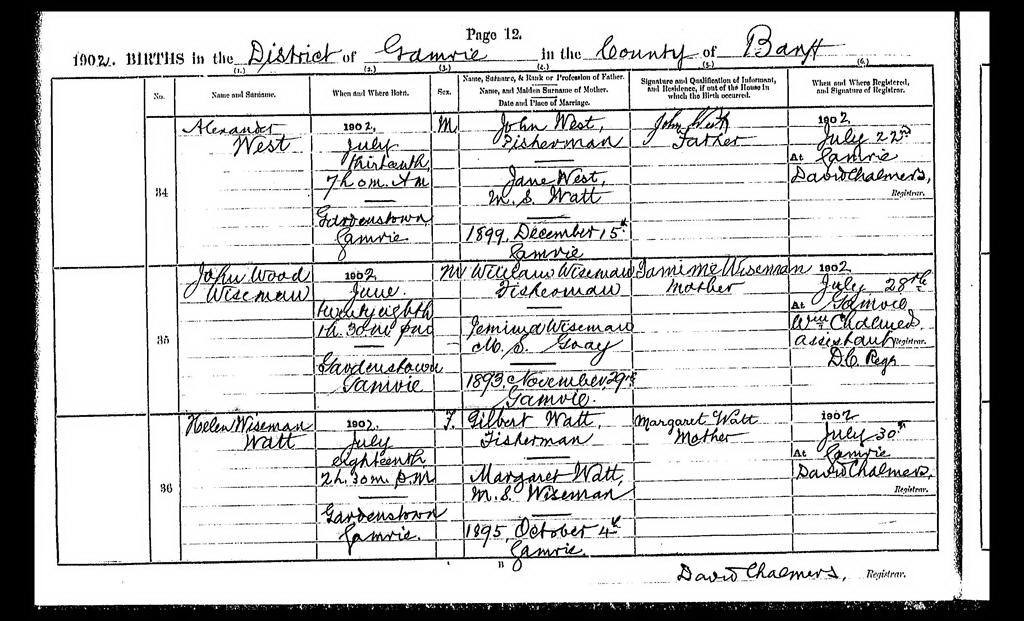 Page 12.
1902. BIRTHS in the District of Gamrie in the County of Banff
(1.) (2.) (3.) (4.) (5.) (6.)
No.
Name and Surname.
When and Where Born.
Sex.
Name, Surname, & Rank or Profession of Father.
Name, and Maiden Surname of Mother.
Date and Place of Marriage.
Signature and Qualification of Informant,
and Residence, if out of the House in
which the Birth occurred.
When and Where Registered,
and Signature of Registrar.
34
Alexander
West
1902,
July
thirteenth,
7h. 0m. A.M
Gardenstown
Gamrie.
M
John West,
Fisherman
Jane West,
M.S. Watt
1899, December 15th
Gamrie
John West
Father
1902
July 22nd
At Gamrie
David Chalmers,
Registrar.
35
John Wood
Wiseman
1902
June.
twenty eighth
1h. 30m
Gardenstown
Gamrie
M
William Wiseman
Fisherman
Jemima Wiseman
M.S. Gray
1893 November 29th
Gamrie.
Wiseman
Mother
1902
July 28th
At Gamrie
Wm Chalmers,
assistant Registrar.
36
Helen Wiseman
Watt
1902.
July
eighteenth
2h. 30m. P.M
Gardenstown
Gamrie.
F.
Gilbert Watt,
Fisherman
Margaret Watt,
M.S. Wiseman
1895, October 4th
Gamrie.
Margaret Watt
Mother
1902
July 30th
At Gamrie
David Chalmers,
Registrar.
B
David Chalmers, Registrar.